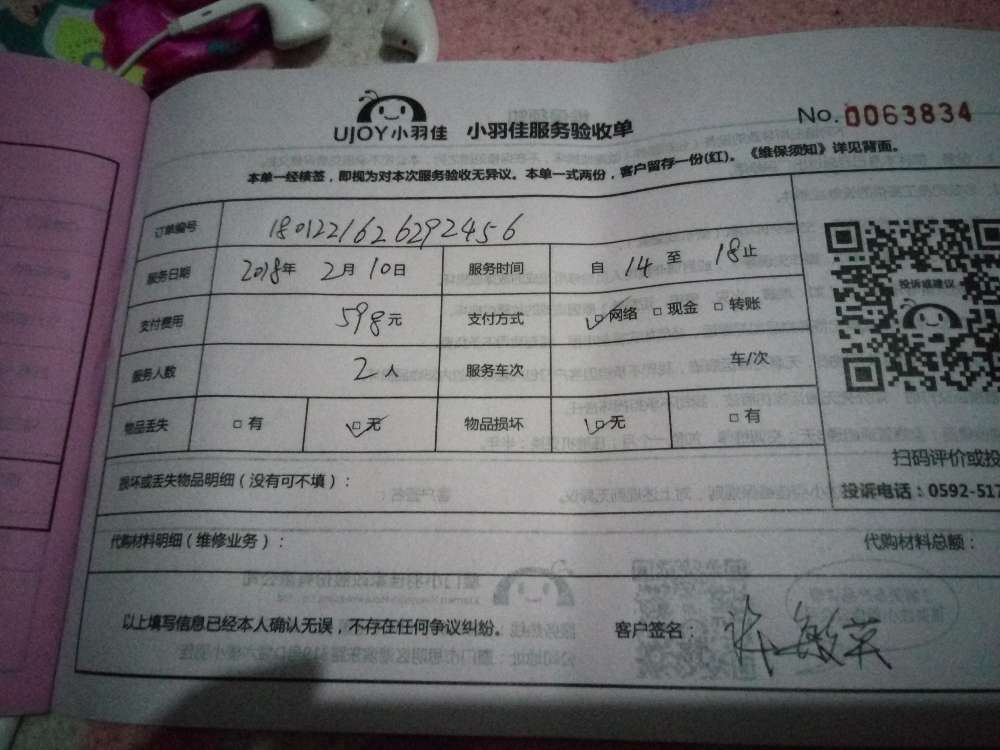 UJOY小羽佳 小羽佳服务验收单 No.0063834
本单一经核签，即视为对本次服务验收无异议。本单一式两份，客户留存一份(红)。《维保须知》详见背面。
订单编号 1801221626292456
服务日期 2018年 2月 10日 服务时间 自 14 至 18止
支付费用 598元 支付方式 网络 现金 转账
服务人数 2人 服务车次 车/次
物品丢失 有 无 物品损坏 无 有
投诉或建议
扫码评价或投
损坏或丢失物品明细（没有可不填）： 投诉电话：0592-517
代购材料明细（维修业务）： 代购材料总额：
以上填写信息已经本人确认无误，不存在任何争议纠纷。 客户签名： 敏英